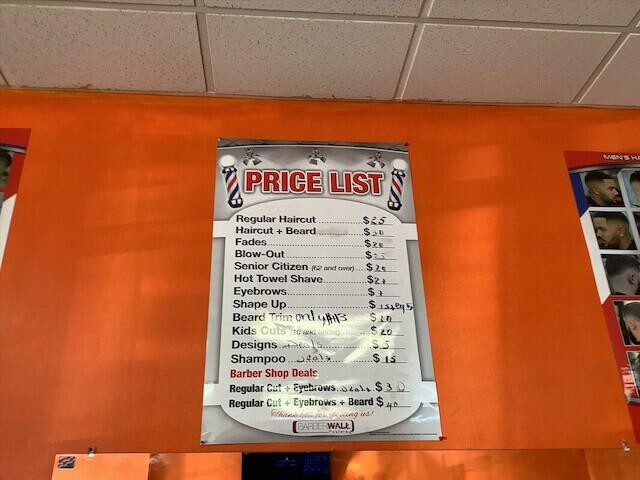 PRICE LIST
Regular Haircut $25
Haircut + Beard $30
Fades $20
Blow-Out $25
Senior Citizen (62 and over) $20
Hot Towel Shave $20
Eyebrows $
Shape Up $
Beard Trim only $
Kids Cuts (10 and under) $20
Designs $5
Shampoo $15
Barber Shop Deals
Regular Cut + Eyebrows $30
Regular Cut + Eyebrows + Beard $40
Thank you for visiting us!
BARBERWALL
MEN'S HA